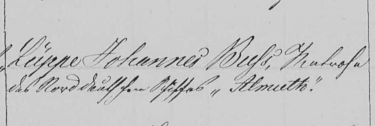 „Lüppe Johannes Buss, Matrose
des Norddeutschen Schiffes „Almuth“.